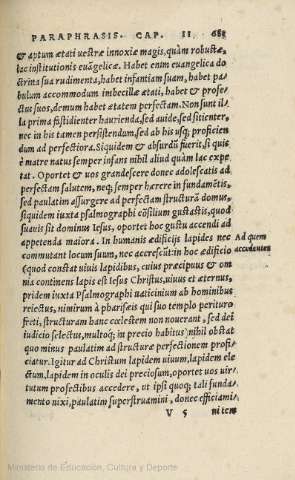 PARAPHRASIS. CAP. II. 681
& aptum ætati uestræ innoxiæ magis, quàm robustæ,
lac institutionis euãgelicæ. Habet enim euangelica do
ctrina sua rudimenta, habet infantiam suam, habet pa
bulum accommodum imbecillæ ætati, habet & profe-
ctus suos, demum habet ætatem perfectam. Non sunt il
la prima fastidienter haurienda, sed auide, sed sitienter,
nec in his tamen persistendum, sed ab his usq; proficien
dum ad perfectiora. Siquidem & absurdũ fuerit, si quis
è matre natus semper infans nihil aliud quàm lac expe
tat. Oportet & uos grandescere donec adolescatis ad
perfectam salutem, neq; semper hærere in fundamẽtis,
sed paulatim assurgere ad perfectam structurã domus,
siquidem iuxta psalmographi cõsilium gustastis, quod
suauis sit dominus Iesus, oportet hoc gustu accendi ad
appetenda maiora. In humanis ædificijs lapides nec
Ad quem
commutant locum suum, nec accrescũt: in hoc ædificio
accedentes
(quod constat uiuis lapidibus, cuius præcipuus & om
nia continens lapis est Iesus Christus, uiuus et æternus,
pridem iuxta Psalmographi uaticinium ab hominibus
reiectus, nimirum à pharisæis qui suo templo periturо
freti, structuram hanc cœlestem non nouerant, sed dei
iudicio selectus, multoq; in precio habitus) nihil obstat
quo minus paulatim ad structuræ perfectionem profi
ciatur. Igitur ad Christum lapidem uiuum, lapidem ele
ctum, lapidem in oculis dei preciosum, oportet uos uir
tutum profectibus accedere, ut ipsi quoq; tali funda
mento nixi, paulatim superstruamini, donec efficiami
V 5 ni tem
Ministerio de Educación, Cultura y Deporte